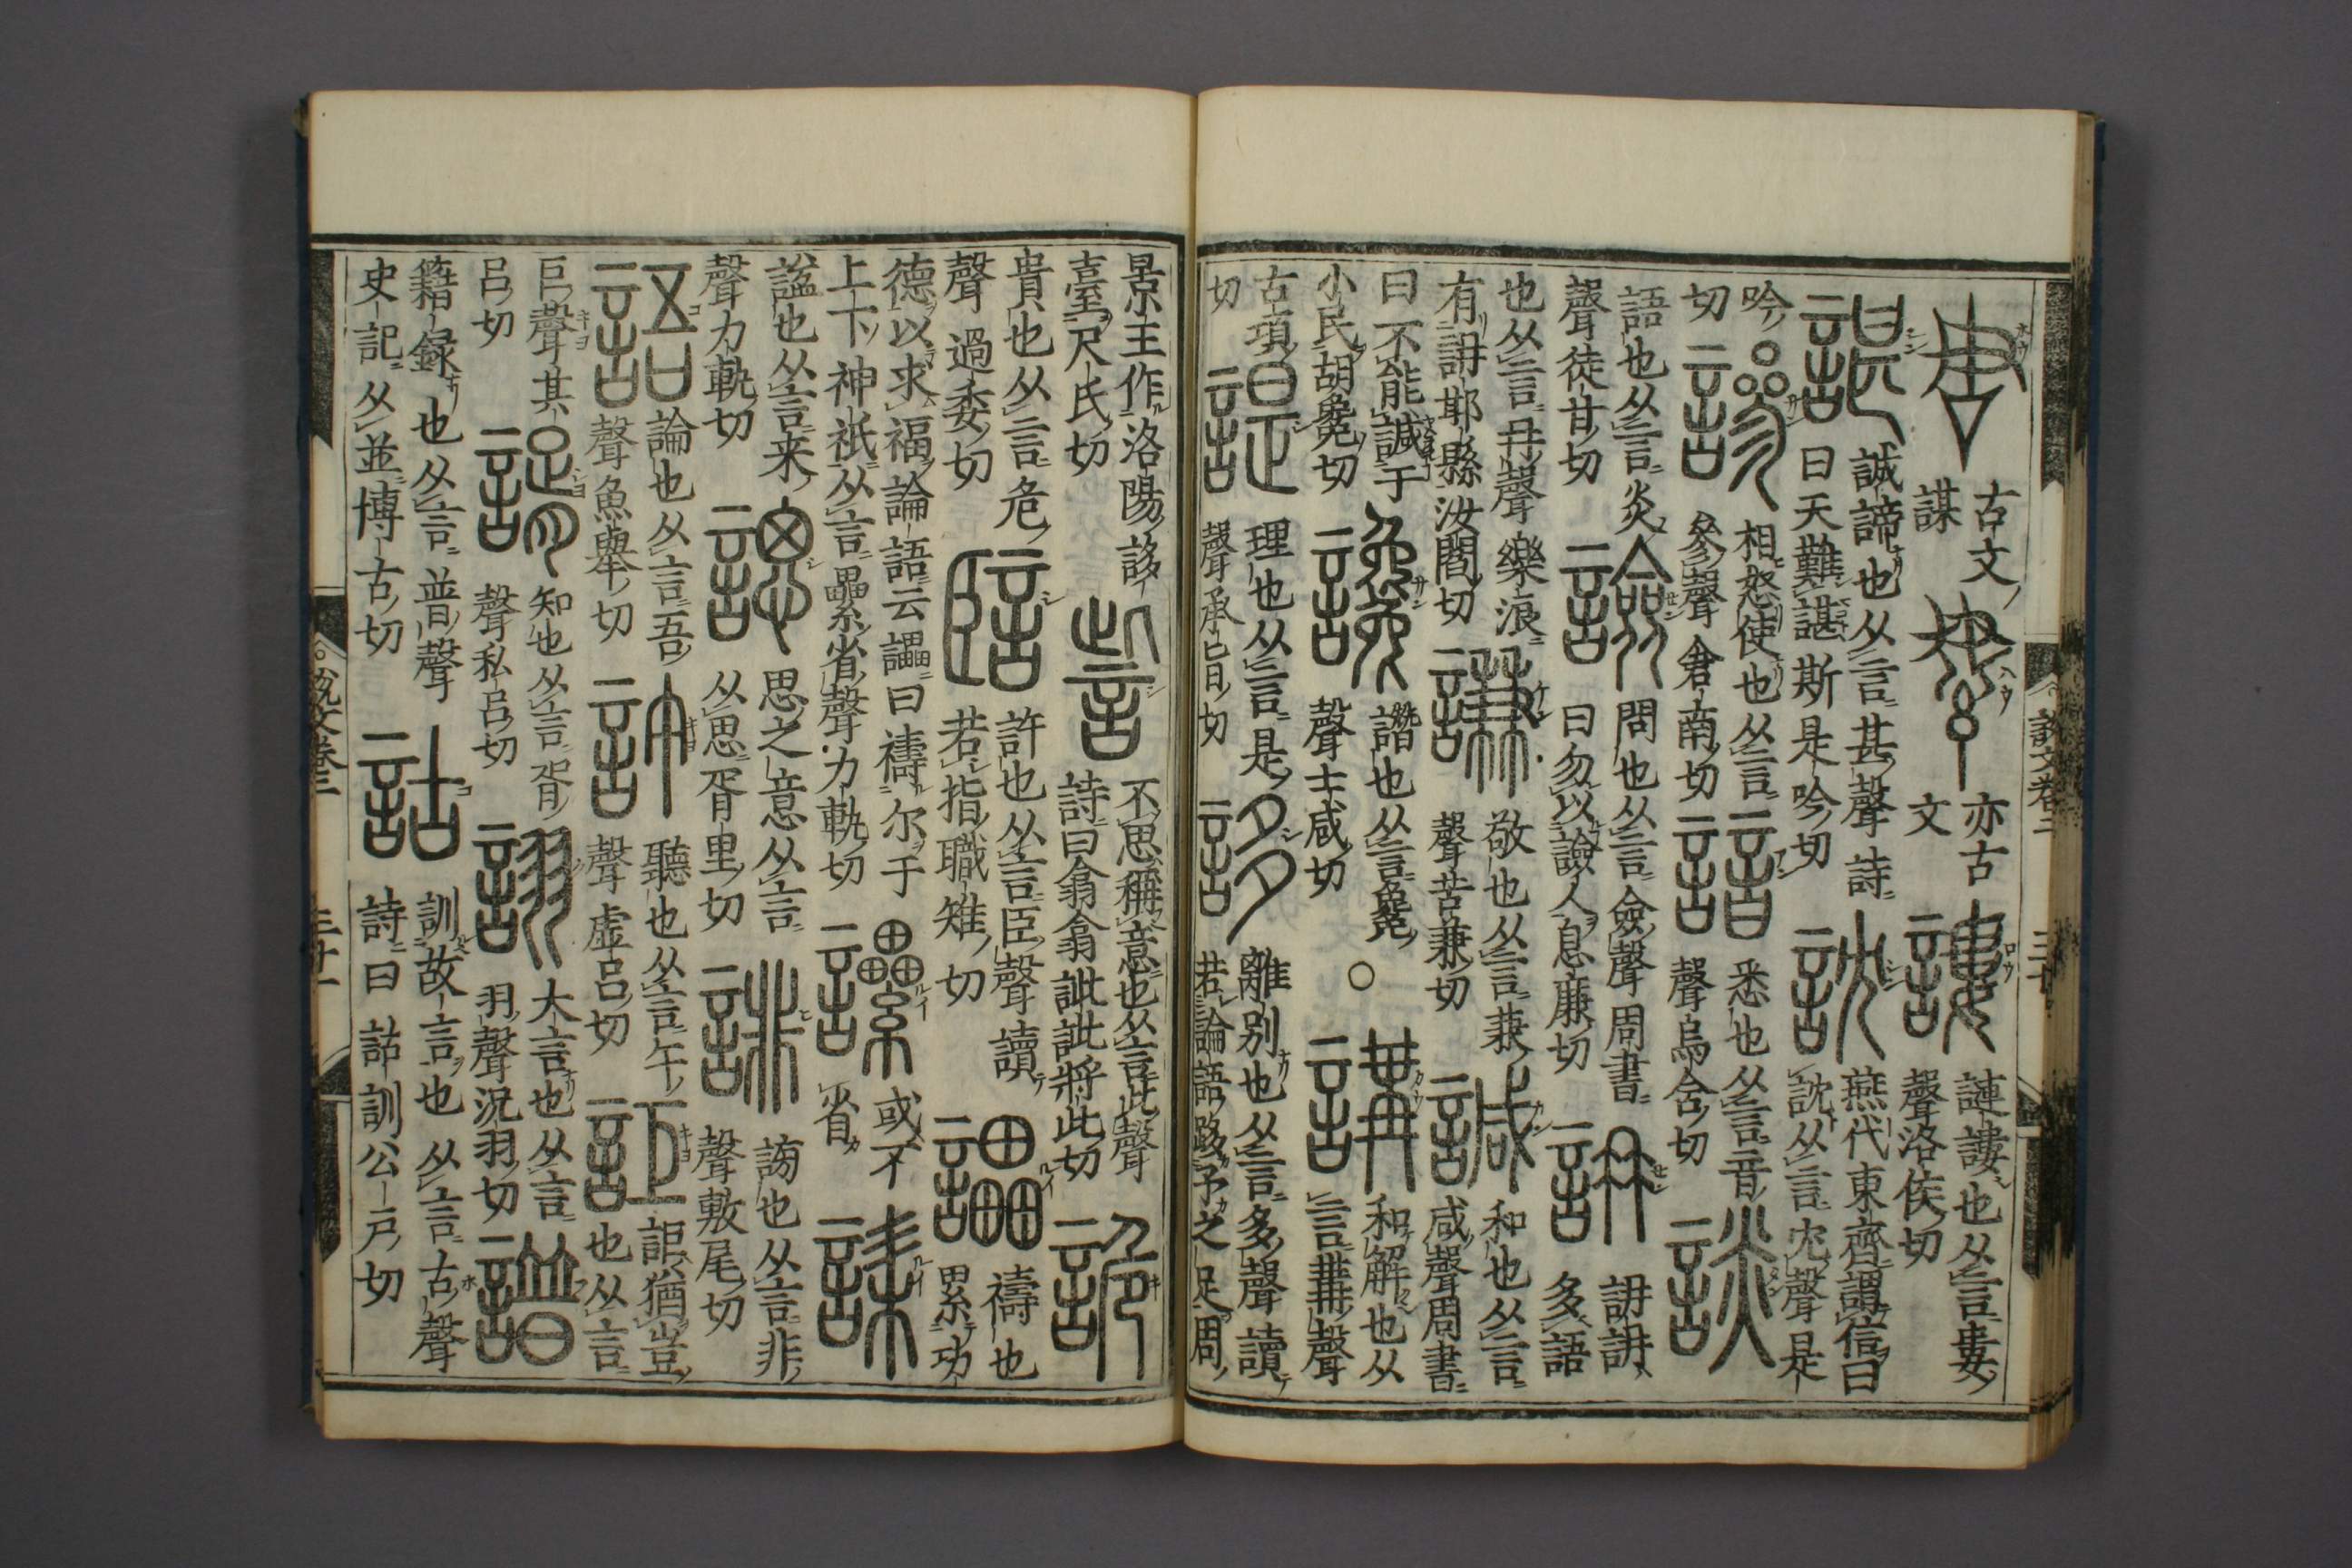 説文卷三 三十
古文謀 亦古文 謱 謰謱也从言婁聲洛侯切
諶 誠諦也从言甚聲詩曰天難諶斯是吟切 訦 燕代東齊謂信曰訦从言冘聲是
吟切 謲 相怒使也从言參聲倉南切 諳 悉也从言音聲烏含切 談
語也从言炎聲徒甘切 譣 問也从言僉聲周書曰勿以譣人息廉切 䛁 䛁䛁多語
也从言冄聲樂浪有䛁邯縣汝閻切 謙 敬也从言兼聲苦兼切 諴 和也从言咸聲周書
曰不能諴于小民胡毚切 讒 譖也从言毚聲士咸切 ○ 講 和解也从言冓聲
古項切 諟 理也从言是聲承旨切 誃 離別也从言多聲讀若論語跢予之足周
景王作洛陽誃臺尺氏切 訾 不思稱意也从言此聲詩曰翕翕訿訿將此切 詭
責也从言危聲過委切 𧦧 訐也从言臣聲讀若指職雉切 讄 禱也累功
德以求福論語云讄曰禱尔于上下神祇从言纍省聲力軌切 或不省 誄
諡也从言耒聲力軌切 諰 思之意从言从思胥里切 誹 謗也从言非聲敷尾切
語 論也从言吾聲魚舉切 許 聽也从言午聲虛呂切 詎 詎猶豈也从言
巨聲其呂切 諝 知也从言胥聲私呂切 詡 大言也从言羽聲況羽切 譜
籍録也从言普聲史記从並博古切 詁 訓故言也从言古聲詩曰詁訓公戸切
説文卷三 三十一